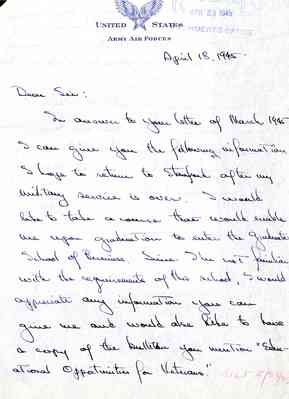 UNITED STATES
ARMY AIR FORCES
APR 23 1945
April 18, 1945
Dear Sir:
In answer to your letter of March 1945
I can give you the following information
I hope to return to Stanford after my
military service is over. I would
like to take a course that would enable
me upon graduation to enter the Graduate
School of Business. Since I'm not familiar
with the requirements of this school, I would
appreciate any information you can
give me and would also like to have
a copy of the bulletin you mention "Edu-
ational Opportunities for Veterans"